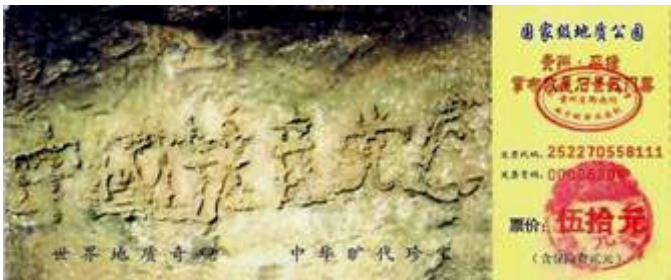 中國共産党亡
世界地质奇观 中华旷代珍宝
国家级地质公园
贵州·平塘
掌布藏字石景区门票
发票代码: 252270558111
发票号码:
票价: 伍拾元
(含保险费贰元)